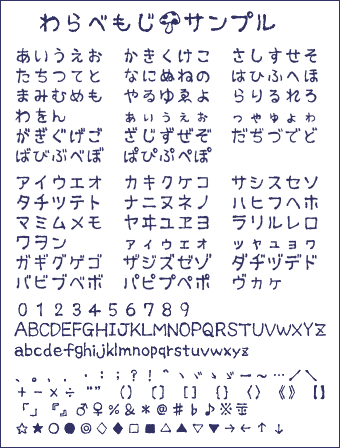 わらべもじ🍄サンプル
あいうえお かきくけこ さしすせそ
たちつてと なにぬねの はひふへほ
まみむめも やるゆゑよ らりるれろ
わをん ぁぃぅぇぉ っゃゅょゎ
がぎぐげご ざじずぜぞ だぢづでど
ばびぶべぼ ぱぴぷぺぽ
アイウエオ カキクケコ サシスセソ
タチツテト ナニヌネノ ハヒフヘホ
マミムメモ ヤヰユヱヨ ラリルレロ
ワヲン ァィゥェォ ッャュョヮ
ガギグゲゴ ザジズゼゾ ダヂヅデド
バビブベボ パピプペポ ヴヵヶ
0 1 2 3 4 5 6 7 8 9
ABCDEFGHIJKLMNOPQRSTUVWXYZ
abcdefghijklmnopqrstuvwxyz
、。，．・：；？！゛ヽヾゝゞ〜…／＼
＋－×÷“”（）〔〕［］｛｝〈〉《》【】
「」『』♂♀％＆＊＠♯♭♪※〒
☆★○●◎◇◆□■△▲▽▼→←↑↓